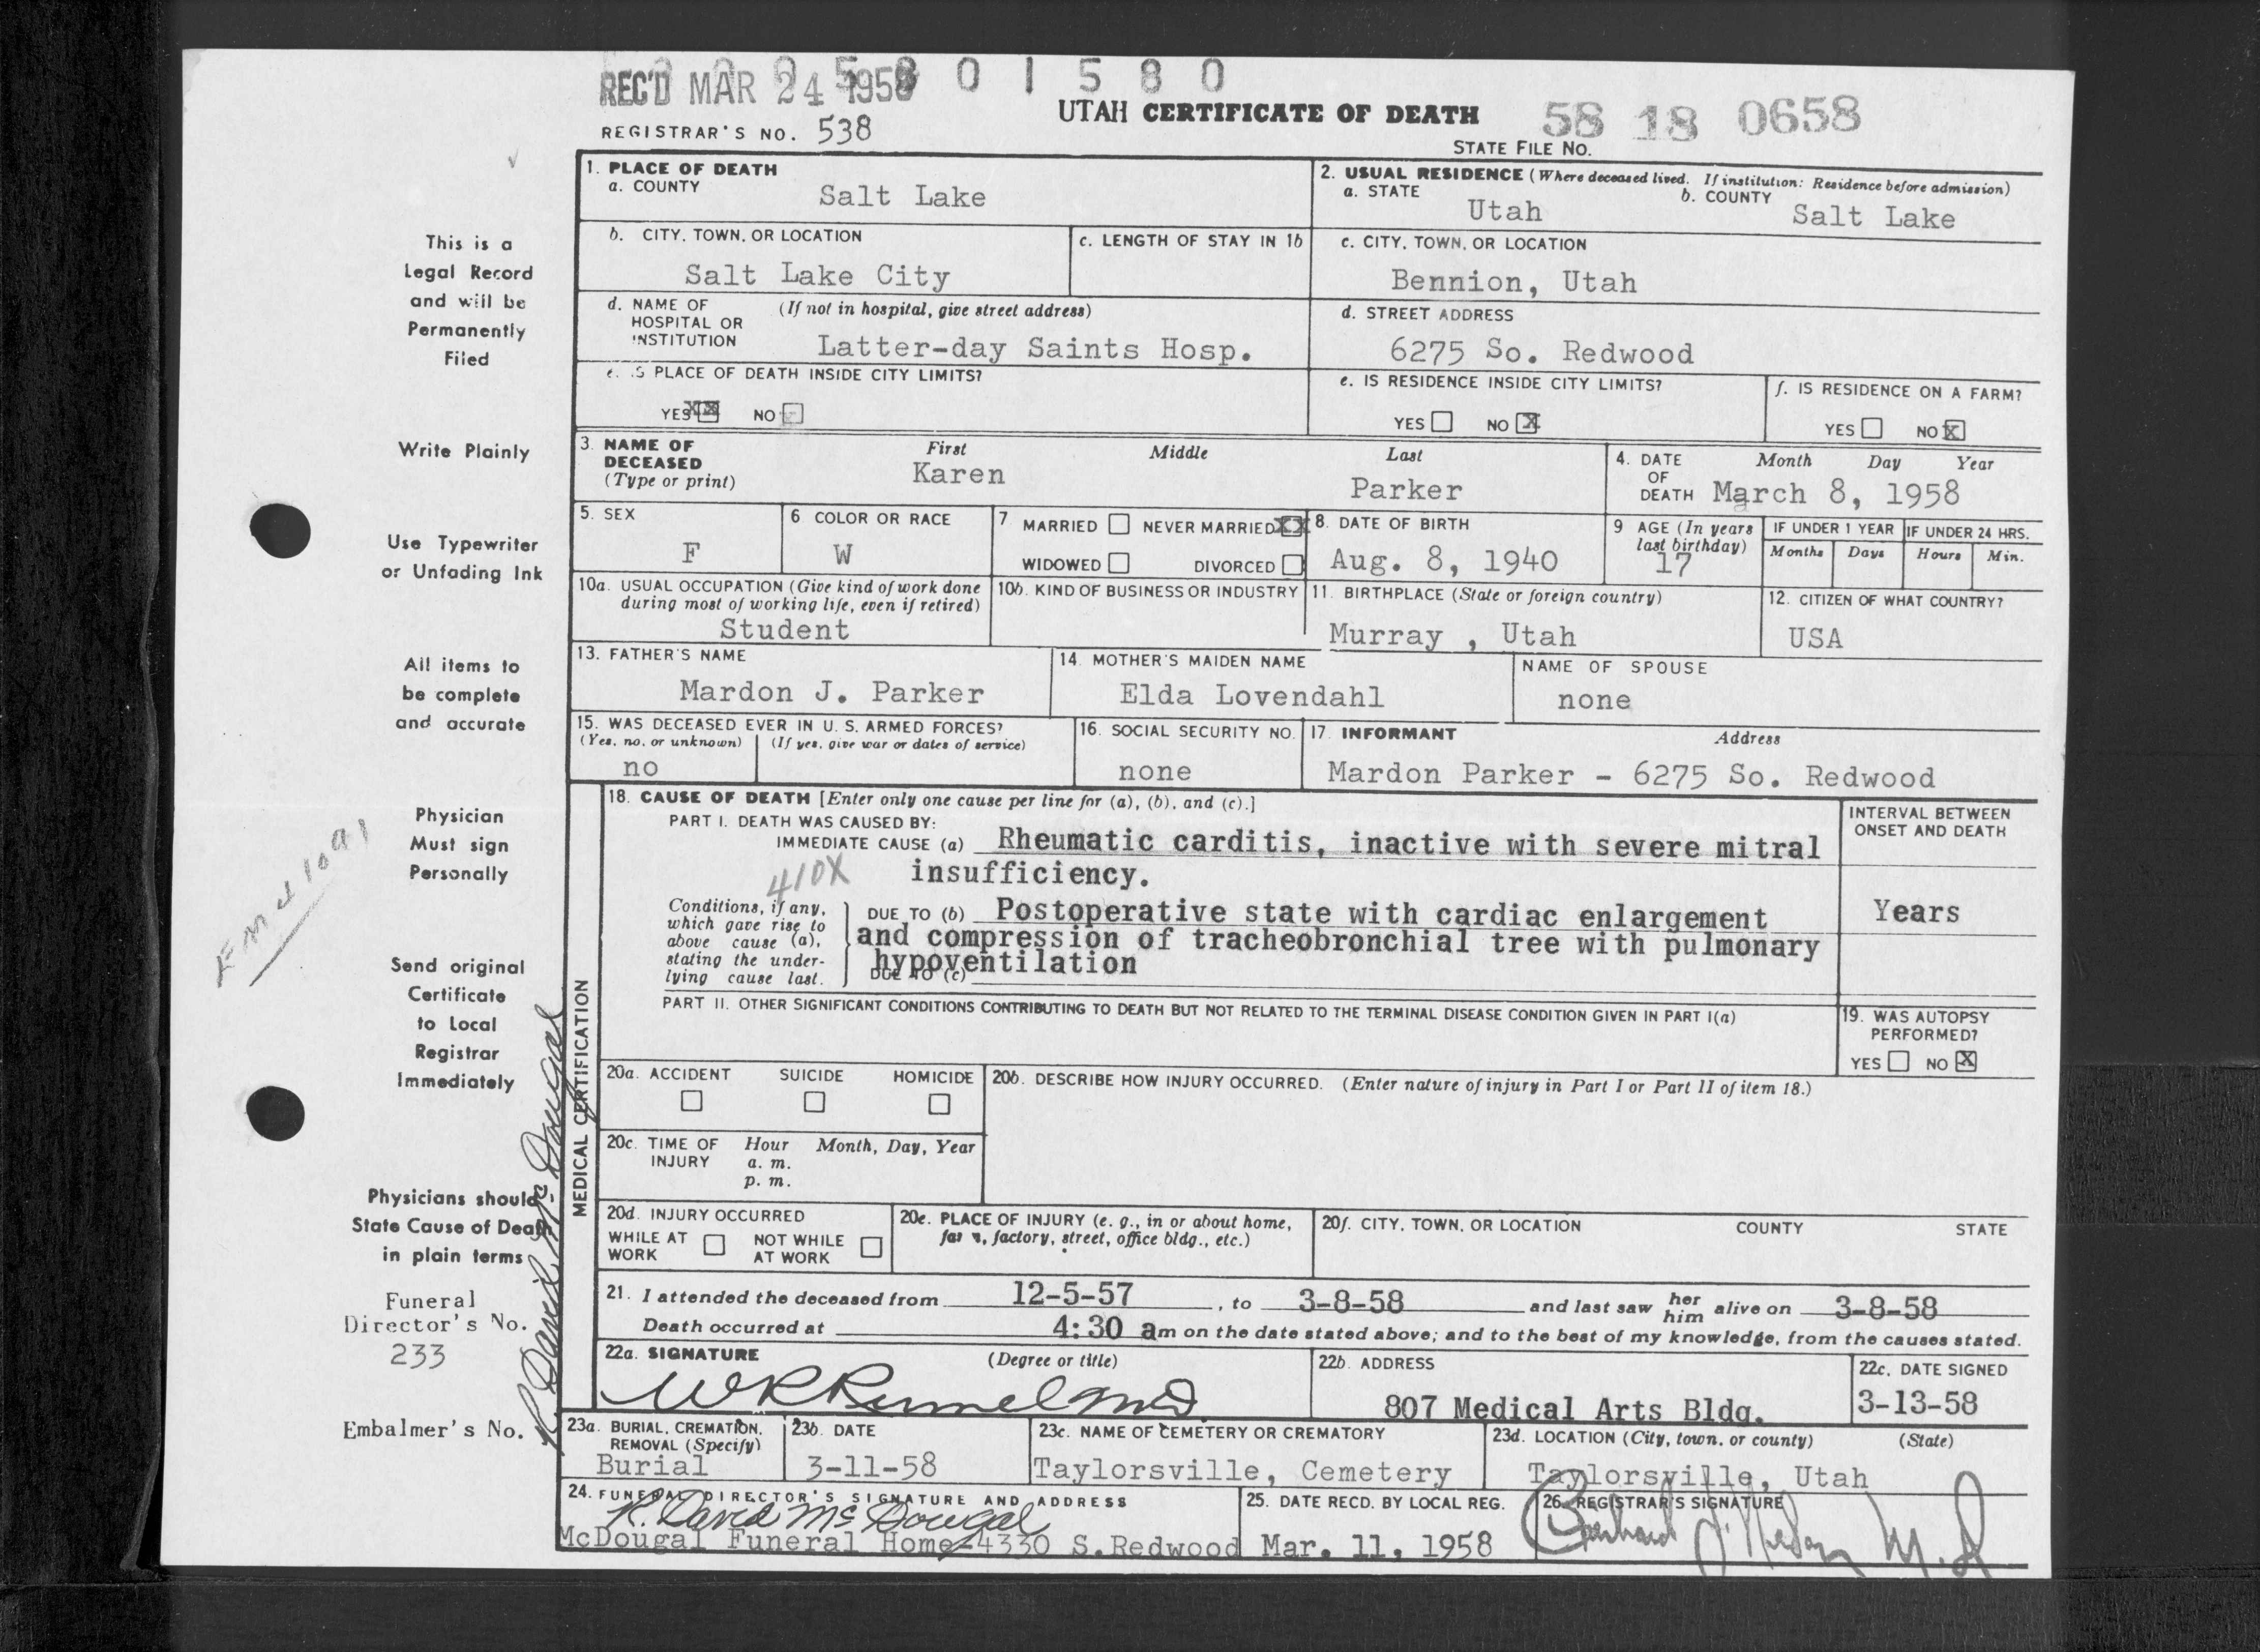 REC'D MAR 24 1958 0 1 5 8 0
UTAH CERTIFICATE OF DEATH
58 18 0658
REGISTRAR'S NO. 538
STATE FILE NO.
1. PLACE OF DEATH
a. COUNTY
Salt Lake
2. USUAL RESIDENCE (Where deceased lived. If institution: Residence before admission)
a. STATE
Utah
b. COUNTY
Salt Lake
b. CITY, TOWN, OR LOCATION
Salt Lake City
c. LENGTH OF STAY IN 1b
c. CITY, TOWN, OR LOCATION
Bennion, Utah
d. NAME OF HOSPITAL OR INSTITUTION
(If not in hospital, give street address)
Latter-day Saints Hosp.
d. STREET ADDRESS
6275 So. Redwood
e. IS PLACE OF DEATH INSIDE CITY LIMITS?
YES XX NO
e. IS RESIDENCE INSIDE CITY LIMITS?
YES NO X
f. IS RESIDENCE ON A FARM?
YES NO X
3. NAME OF DECEASED
(Type or print)
First
Karen
Middle
Last
Parker
4. DATE OF DEATH
Month Day Year
March 8, 1958
5. SEX
F
6 COLOR OR RACE
W
7 MARRIED NEVER MARRIED XX
WIDOWED DIVORCED
8. DATE OF BIRTH
Aug. 8, 1940
9 AGE (In years last birthday)
17
IF UNDER 1 YEAR
Months Days
IF UNDER 24 HRS.
Hours Min.
10a. USUAL OCCUPATION (Give kind of work done during most of working life, even if retired)
Student
10b. KIND OF BUSINESS OR INDUSTRY
11. BIRTHPLACE (State or foreign country)
Murray , Utah
12. CITIZEN OF WHAT COUNTRY?
USA
13. FATHER'S NAME
Mardon J. Parker
14. MOTHER'S MAIDEN NAME
Elda Lovendahl
NAME OF SPOUSE
none
15. WAS DECEASED EVER IN U. S. ARMED FORCES?
(Yes, no, or unknown) (If yes, give war or dates of service)
no
16. SOCIAL SECURITY NO.
none
17. INFORMANT Address
Mardon Parker - 6275 So. Redwood
MEDICAL CERTIFICATION
18. CAUSE OF DEATH [Enter only one cause per line for (a), (b), and (c).]
PART I. DEATH WAS CAUSED BY:
IMMEDIATE CAUSE (a) Rheumatic carditis, inactive with severe mitral
insufficiency.
410X
Conditions, if any, which gave rise to above cause (a), stating the underlying cause last.
DUE TO (b) Postoperative state with cardiac enlargement
and compression of tracheobronchial tree with pulmonary
hypoventilation
DUE TO (c)
INTERVAL BETWEEN ONSET AND DEATH
Years
PART II. OTHER SIGNIFICANT CONDITIONS CONTRIBUTING TO DEATH BUT NOT RELATED TO THE TERMINAL DISEASE CONDITION GIVEN IN PART I(a)
19. WAS AUTOPSY PERFORMED?
YES NO X
20a. ACCIDENT SUICIDE HOMICIDE
20b. DESCRIBE HOW INJURY OCCURRED. (Enter nature of injury in Part I or Part II of item 18.)
20c. TIME OF INJURY
Hour Month, Day, Year
a. m.
p. m.
20d. INJURY OCCURRED
WHILE AT WORK NOT WHILE AT WORK
20e. PLACE OF INJURY (e. g., in or about home, farm, factory, street, office bldg., etc.)
20f. CITY, TOWN, OR LOCATION COUNTY STATE
21. I attended the deceased from 12-5-57, to 3-8-58 and last saw her him alive on 3-8-58
Death occurred at 4:30 am on the date stated above; and to the best of my knowledge, from the causes stated.
22a. SIGNATURE (Degree or title)
22b. ADDRESS
807 Medical Arts Bldg.
22c. DATE SIGNED
3-13-58
23a. BURIAL, CREMATION, REMOVAL (Specify)
Burial
23b. DATE
3-11-58
23c. NAME OF CEMETERY OR CREMATORY
Taylorsville, Cemetery
23d. LOCATION (City, town, or county) (State)
Taylorsville, Utah
24. FUNERAL DIRECTOR'S SIGNATURE AND ADDRESS
R. David McDougal
McDougal Funeral Home-4330 S.Redwood
25. DATE RECD. BY LOCAL REG.
Mar. 11, 1958
26. REGISTRAR'S SIGNATURE
M.D.
This is a
Legal Record
and will be
Permanently
Filed
Write Plainly
Use Typewriter
or Unfading Ink
All items to
be complete
and accurate
Physician
Must sign
Personally
Send original
Certificate
to Local
Registrar
Immediately
Physicians should
State Cause of Death
in plain terms
Funeral
Director's No.
233
Embalmer's No.
R. David McDougal